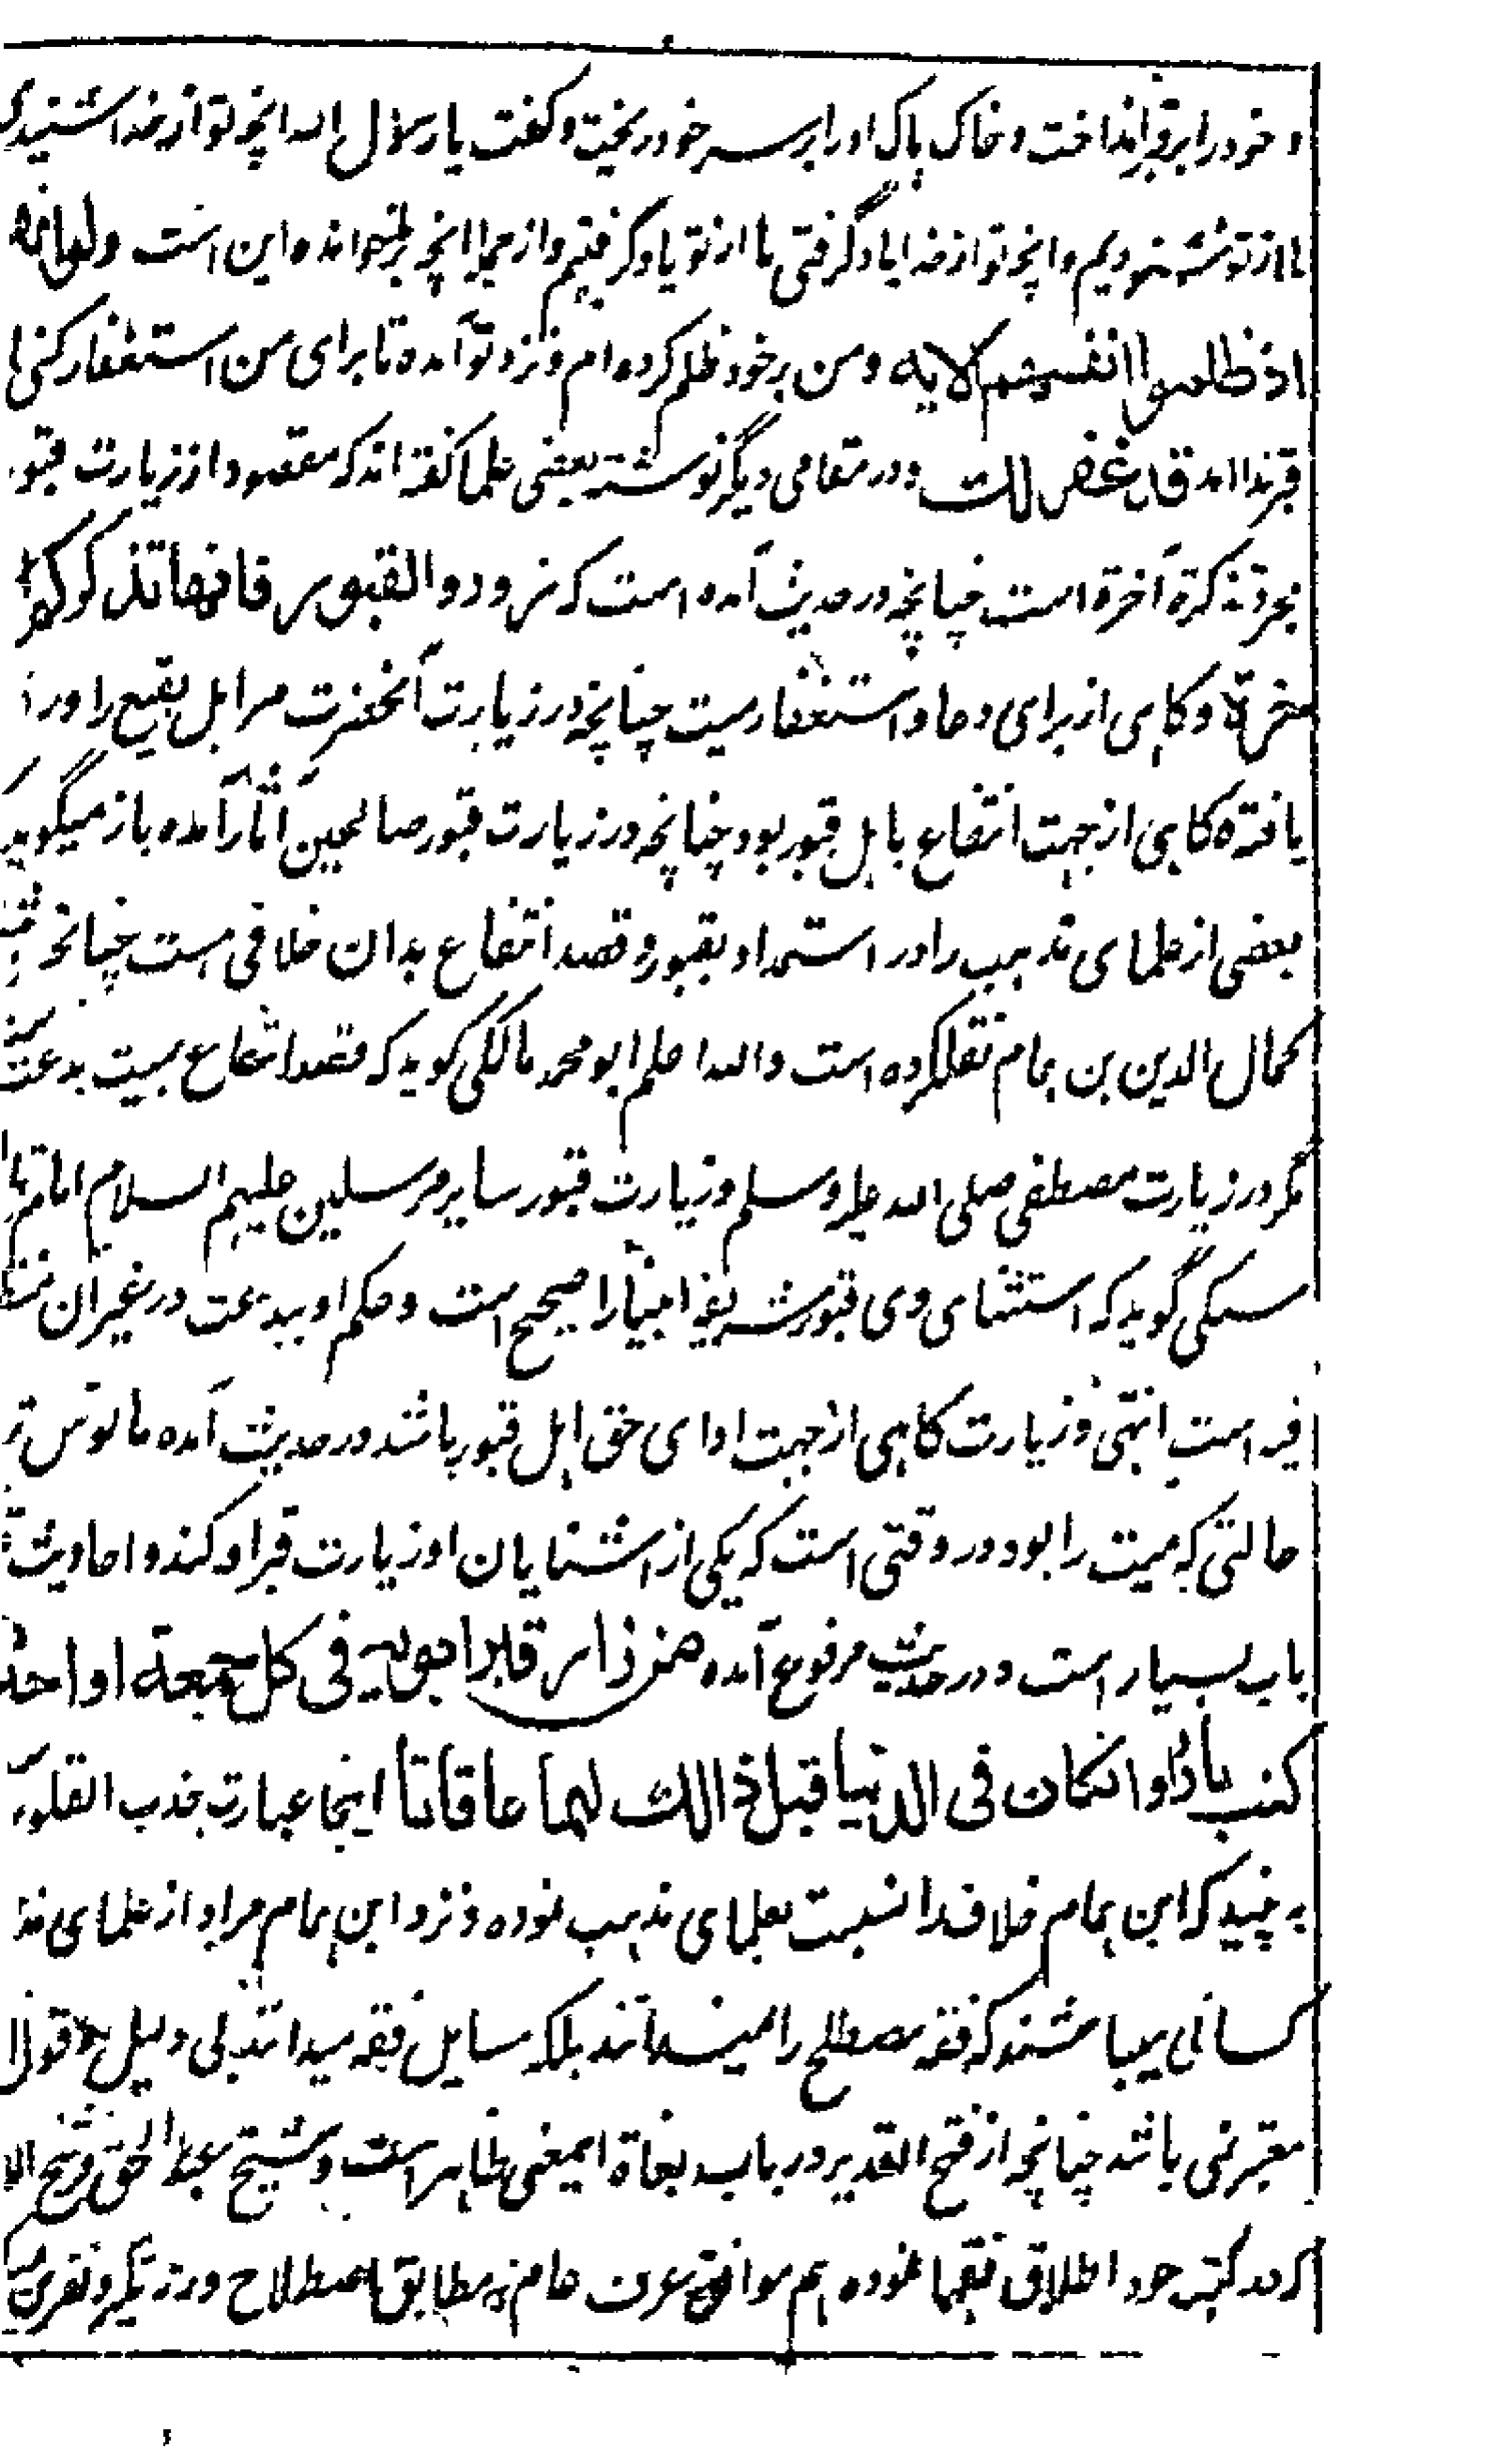 و خود را بر قبر انداخت و خاک پاک او را بر سر خود ریخت و گفت یا رسول الله انچه تو از خدا شنیدی
ما از تو شنودیم و انچه تو از خدا یاد گرفتی ما از تو یاد گرفتیم و از انچه بر تو خوانده این است ولو انهم
اذ ظلموا انفسهم الایه و من بر خود ظلم کرده ام و نزد تو آمده تا برای من استغفار کنی
قبر ندا امد قد غفر لک و در مقامی دیگر نوشته بعضی علما گفته اند که مقصود از زیارت قبور
مجرد تذکرة آخرة است چنانچه در حدیث آمده است که زوروا القبور فانها تذکرکم
خرة و کاهی از برای دعا و استغفار میت چنانچه در زیارت آنحضرت مر اهل بقیع را ورا
یافته کاهی از جهت انتفاع باهل قبور بود چنانچه در زیارت قبور صالحین آثار آمده باز میگوید
بعضی از علمای مذهب را در استمداد بقبور و قصد انتفاع بدان خلافی است چنانچه
کمال الدین بن همام نقل کرده است والله اعلم ابو محمد مالکی گوید که قصد انتفاع بمیت بدعت
مگر در زیارت مصطفی صلی الله علیه وسلم و زیارت قبور سایر مرسلین علیهم السلام امام
سبکی گوید که استثنای وی قبور شریفه انبیا را صحیح است و حکم او ببدعت در غیر ان
فیه است انتهی و زیارت کاهی از جهت ادای حق اهل قبور باشد در حدیث آمده مانوس تر
حالتی که میت را بود در وقتی است که یکی از اشنایان او زیارت قبر او کند و احادیث
باب بسیار است و در حدیث مرفوع آمده من زار قبر ابویه فی کل جمعة او احد
کتب بارا وان کان فی الدنیا قبل ذالک لهما عاقا تا اینجا عبارت جذب القلوب
به بینید که ابن همام خلاف را نسبت بعلمای مذهب نموده و نزد ابن همام مراد از علمای
کسانی میباشند که فقه مصطلح را نمیدانند بلکه مسایل فقه میدانند بی دلیل و قول
معتبر نمی باشد چنانچه از فتح القدیر در باب بغاة ایمعنی ظاهر است و شیخ عبد الحق و شیخ
که در کتب خود اطلاق فقها نموده هم موافق عرف عام نه مطابق اصطلاح